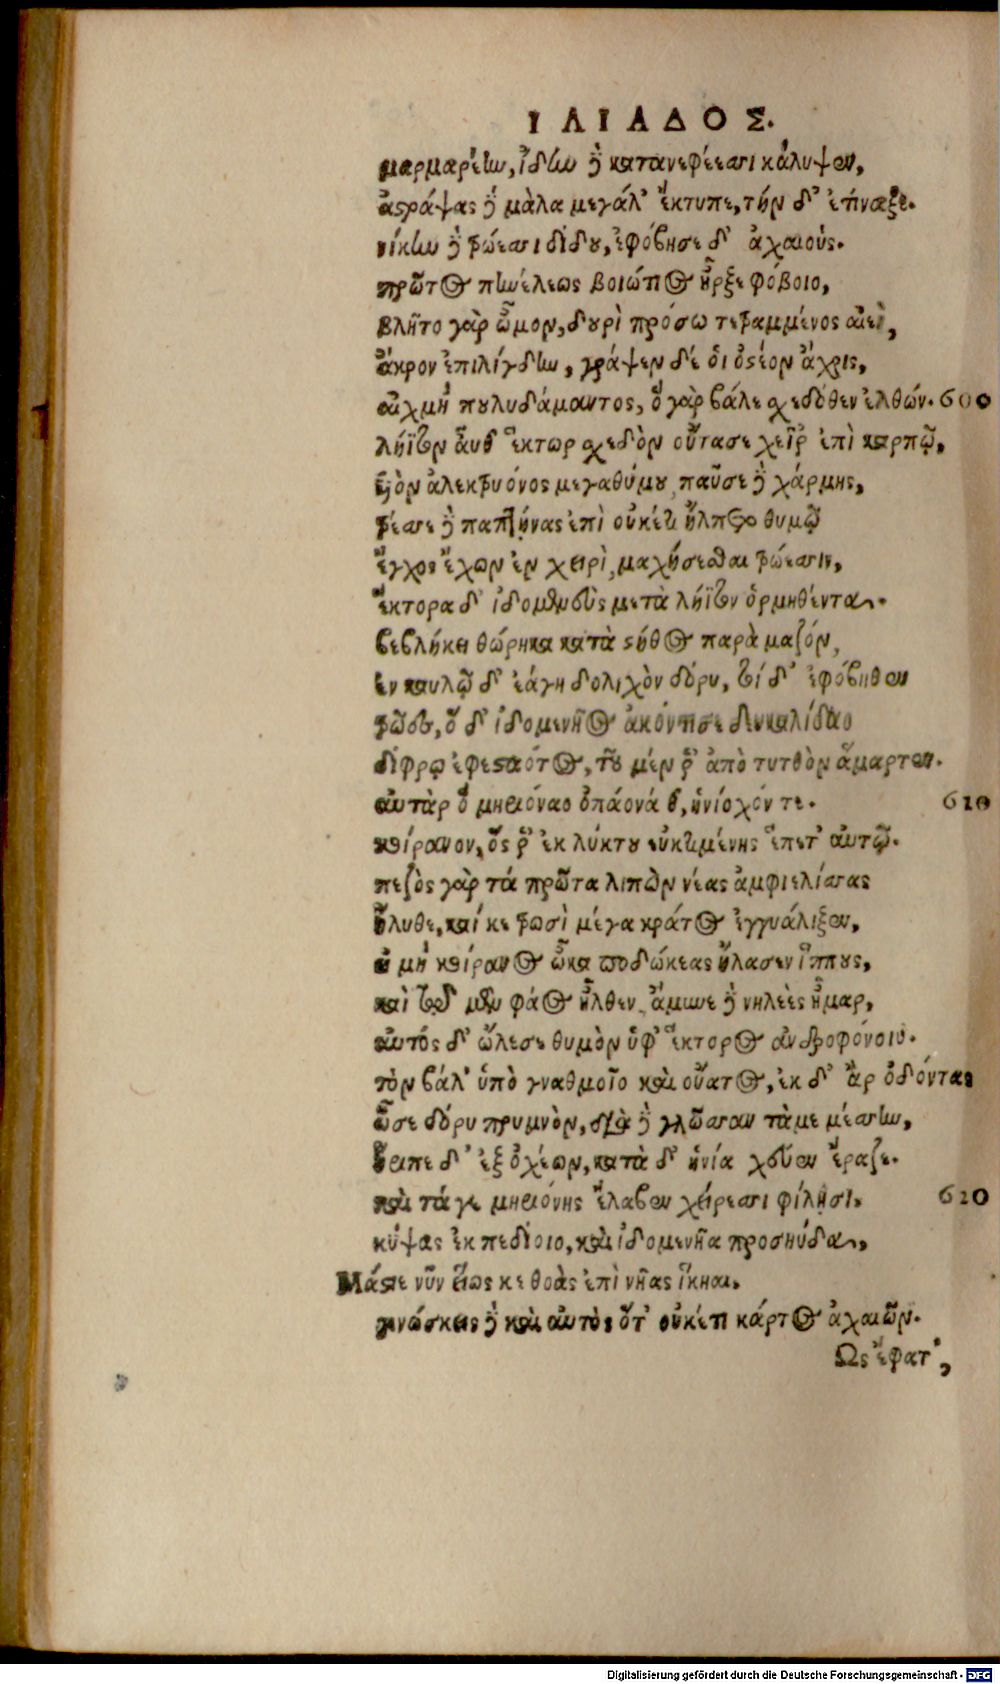 ΙΛΙΑΔΟΣ.
μαρμαρέην, ἴδην δὲ κατανεφέεσσι κάλυψεν,
ἀστράψας δὲ μάλα μεγάλ' ἔκτυπε, τὴν δ' ἐτίναξε.
νίκην δὲ τρώεσσι δίδου, ἐφόβησε δ' ἀχαιούς.
πρῶτος πηνέλεως βοιώτιος ἦρξε φόβοιο,
βλῆτο γὰρ ὦμον, δουρὶ πρόσω τετραμμένος αἰεὶ,
ἄκρον ἐπιλίγδην, γράψεν δέ οἱ ὀστέον ἄχρις,
αἰχμὴ πουλυδάμαντος, ὃ γὰρ βάλε σχεδόθεν ἐλθών. 600
λήϊτον αὖθ' ἕκτωρ σχεδὸν οὔτασε χεῖρ' ἐπὶ καρπῷ,
ὑὸν ἀλεκτρυόνος μεγαθύμου, παῦσε δὲ χάρμης,
τρέσσε δὲ παπτήνας ἐπὶ οὐκέτι ἤλπετο θυμῷ
ἔγχος ἔχων ἐν χειρὶ, μαχήσεσθαι τρώεσσιν,
ἕκτορα δ' ἰδομενεὺς μετὰ λήϊτον ὁρμηθέντα.
βεβλήκει θώρηκα κατὰ στῆθος παρὰ μαζόν,
ἐν καυλῷ δ' ἐάγη δολιχὸν δόρυ, τοὶ δ' ἐφόβηθεν
τρῶες, ὃ δ' ἰδομενῆος ἀκόντισε δευκαλίδαο
δίφρῳ ἐφεσταότος, τοῦ μέν ῥ' ἀπὸ τυτθὸν ἅμαρτεν.
αὐτὰρ ὃ μηριόναο ὀπάονά θ', ἡνίοχόν τε. 610
κοίρανον, ὅς ῥ' ἐκ λύκτου εὐκτιμένης ἕπετ' αὐτῷ.
πεζὸς γὰρ τά πρῶτα λιπὼν νέας ἀμφιελίσσας
ἤλυθε, καί κε τρωσὶ μέγα κράτος ἐγγυάλιξεν,
εἰ μὴ κοίρανος ὦκα ποδώκεας ἤλασεν ἵππους,
καὶ τῷ μὲν φάος ἦλθεν, ἄμυνε δὲ νηλεὲς ἦμαρ,
αὐτός δ' ὤλεσε θυμὸν ὑφ' ἕκτορος ἀνδροφόνοιο.
τὸν βάλ' ὑπὸ γναθμοῖο καὶ οὔατος, ἐκ δ' ἄρ ὀδόντας
ὦσε δόρυ πρυμνὸν, διὰ δὲ γλῶσσαν τὰμε μέσσην,
ἤριπε δ' ἐξ ὀχέων, κατὰ δ' ἡνία χεῦεν ἔραζε.
καὶ τά γε μηριόνης ἔλαβεν χείρεσσι φίλῃσι, 620
κύψας ἐκ πεδίοιο, καὶ ἰδομενῆα προσηύδα,
Μάστιε νῦν εἵως κε θοὰς ἐπὶ νῆας ἵκηαι,
γινώσκεις δὲ καὶ αὐτὸς ὅτ' οὐκέτι κάρτος ἀχαιῶν.
Ὣς ἔφατ',
Digitalisierung gefördert durch die Deutsche Forschungsgemeinschaft - DFG